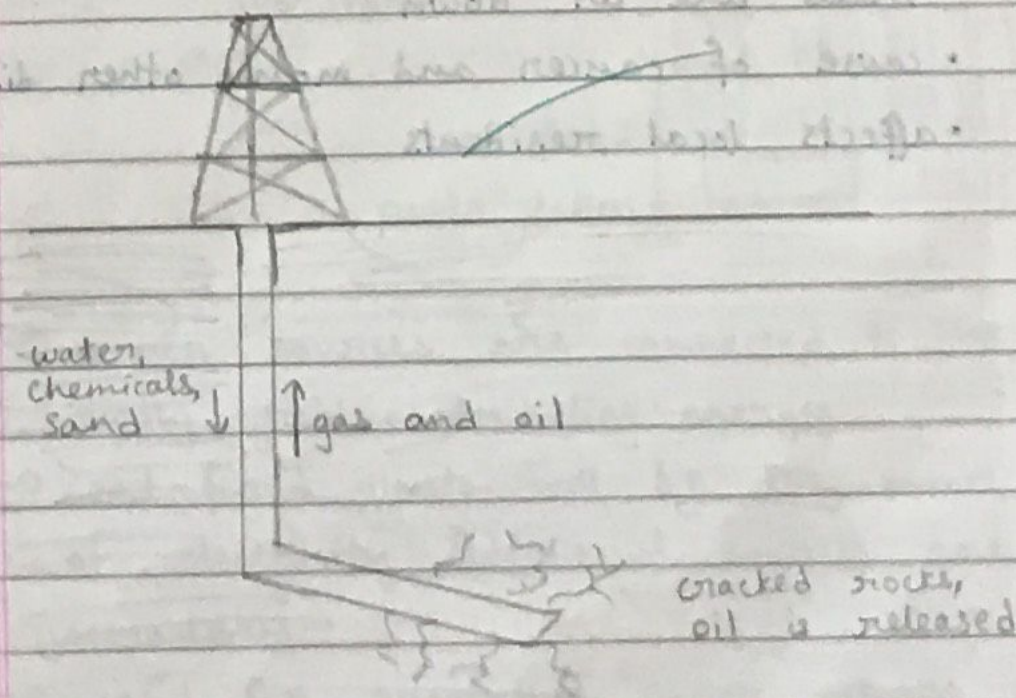 water,
chemicals,
sand ↓
↑ gas and oil
cracked rocks,
oil is released